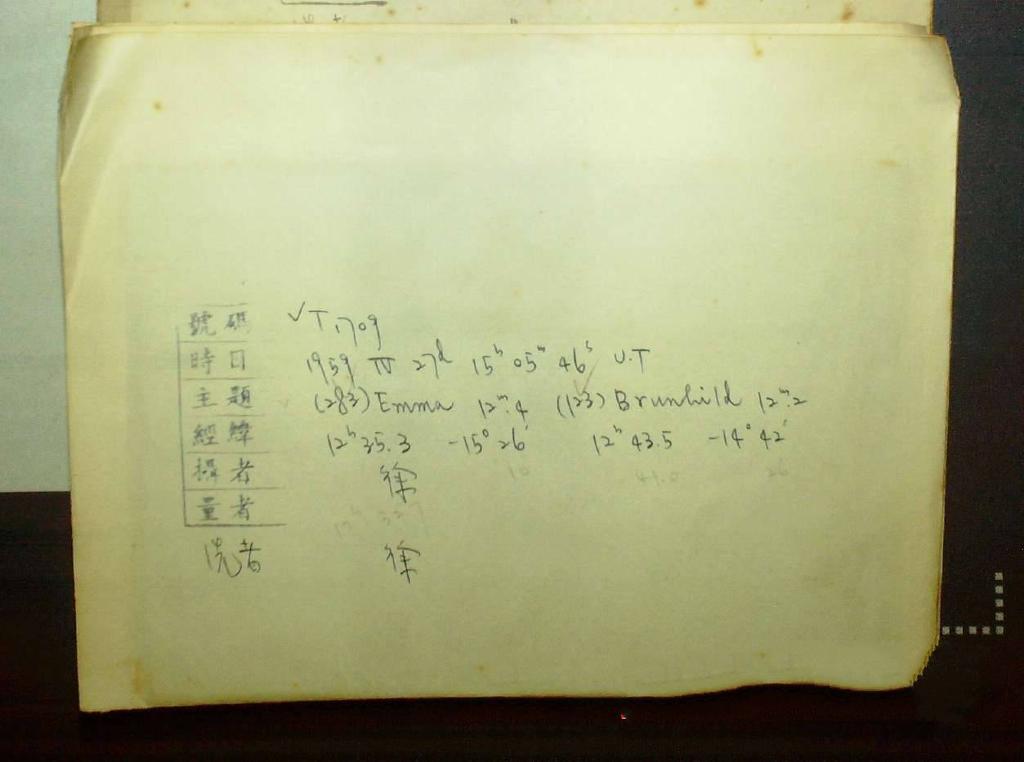 號碼 ✓T 1709
時日 1959 IV 27d 15h 05m 46s U.T
主題 (283) Emma 12m.4 (123) Brunhild 12m.2
經緯 12h 35.3 -15° 26' 12h 43.5 -14° 42'
攝者 徐
量者
洗者 徐